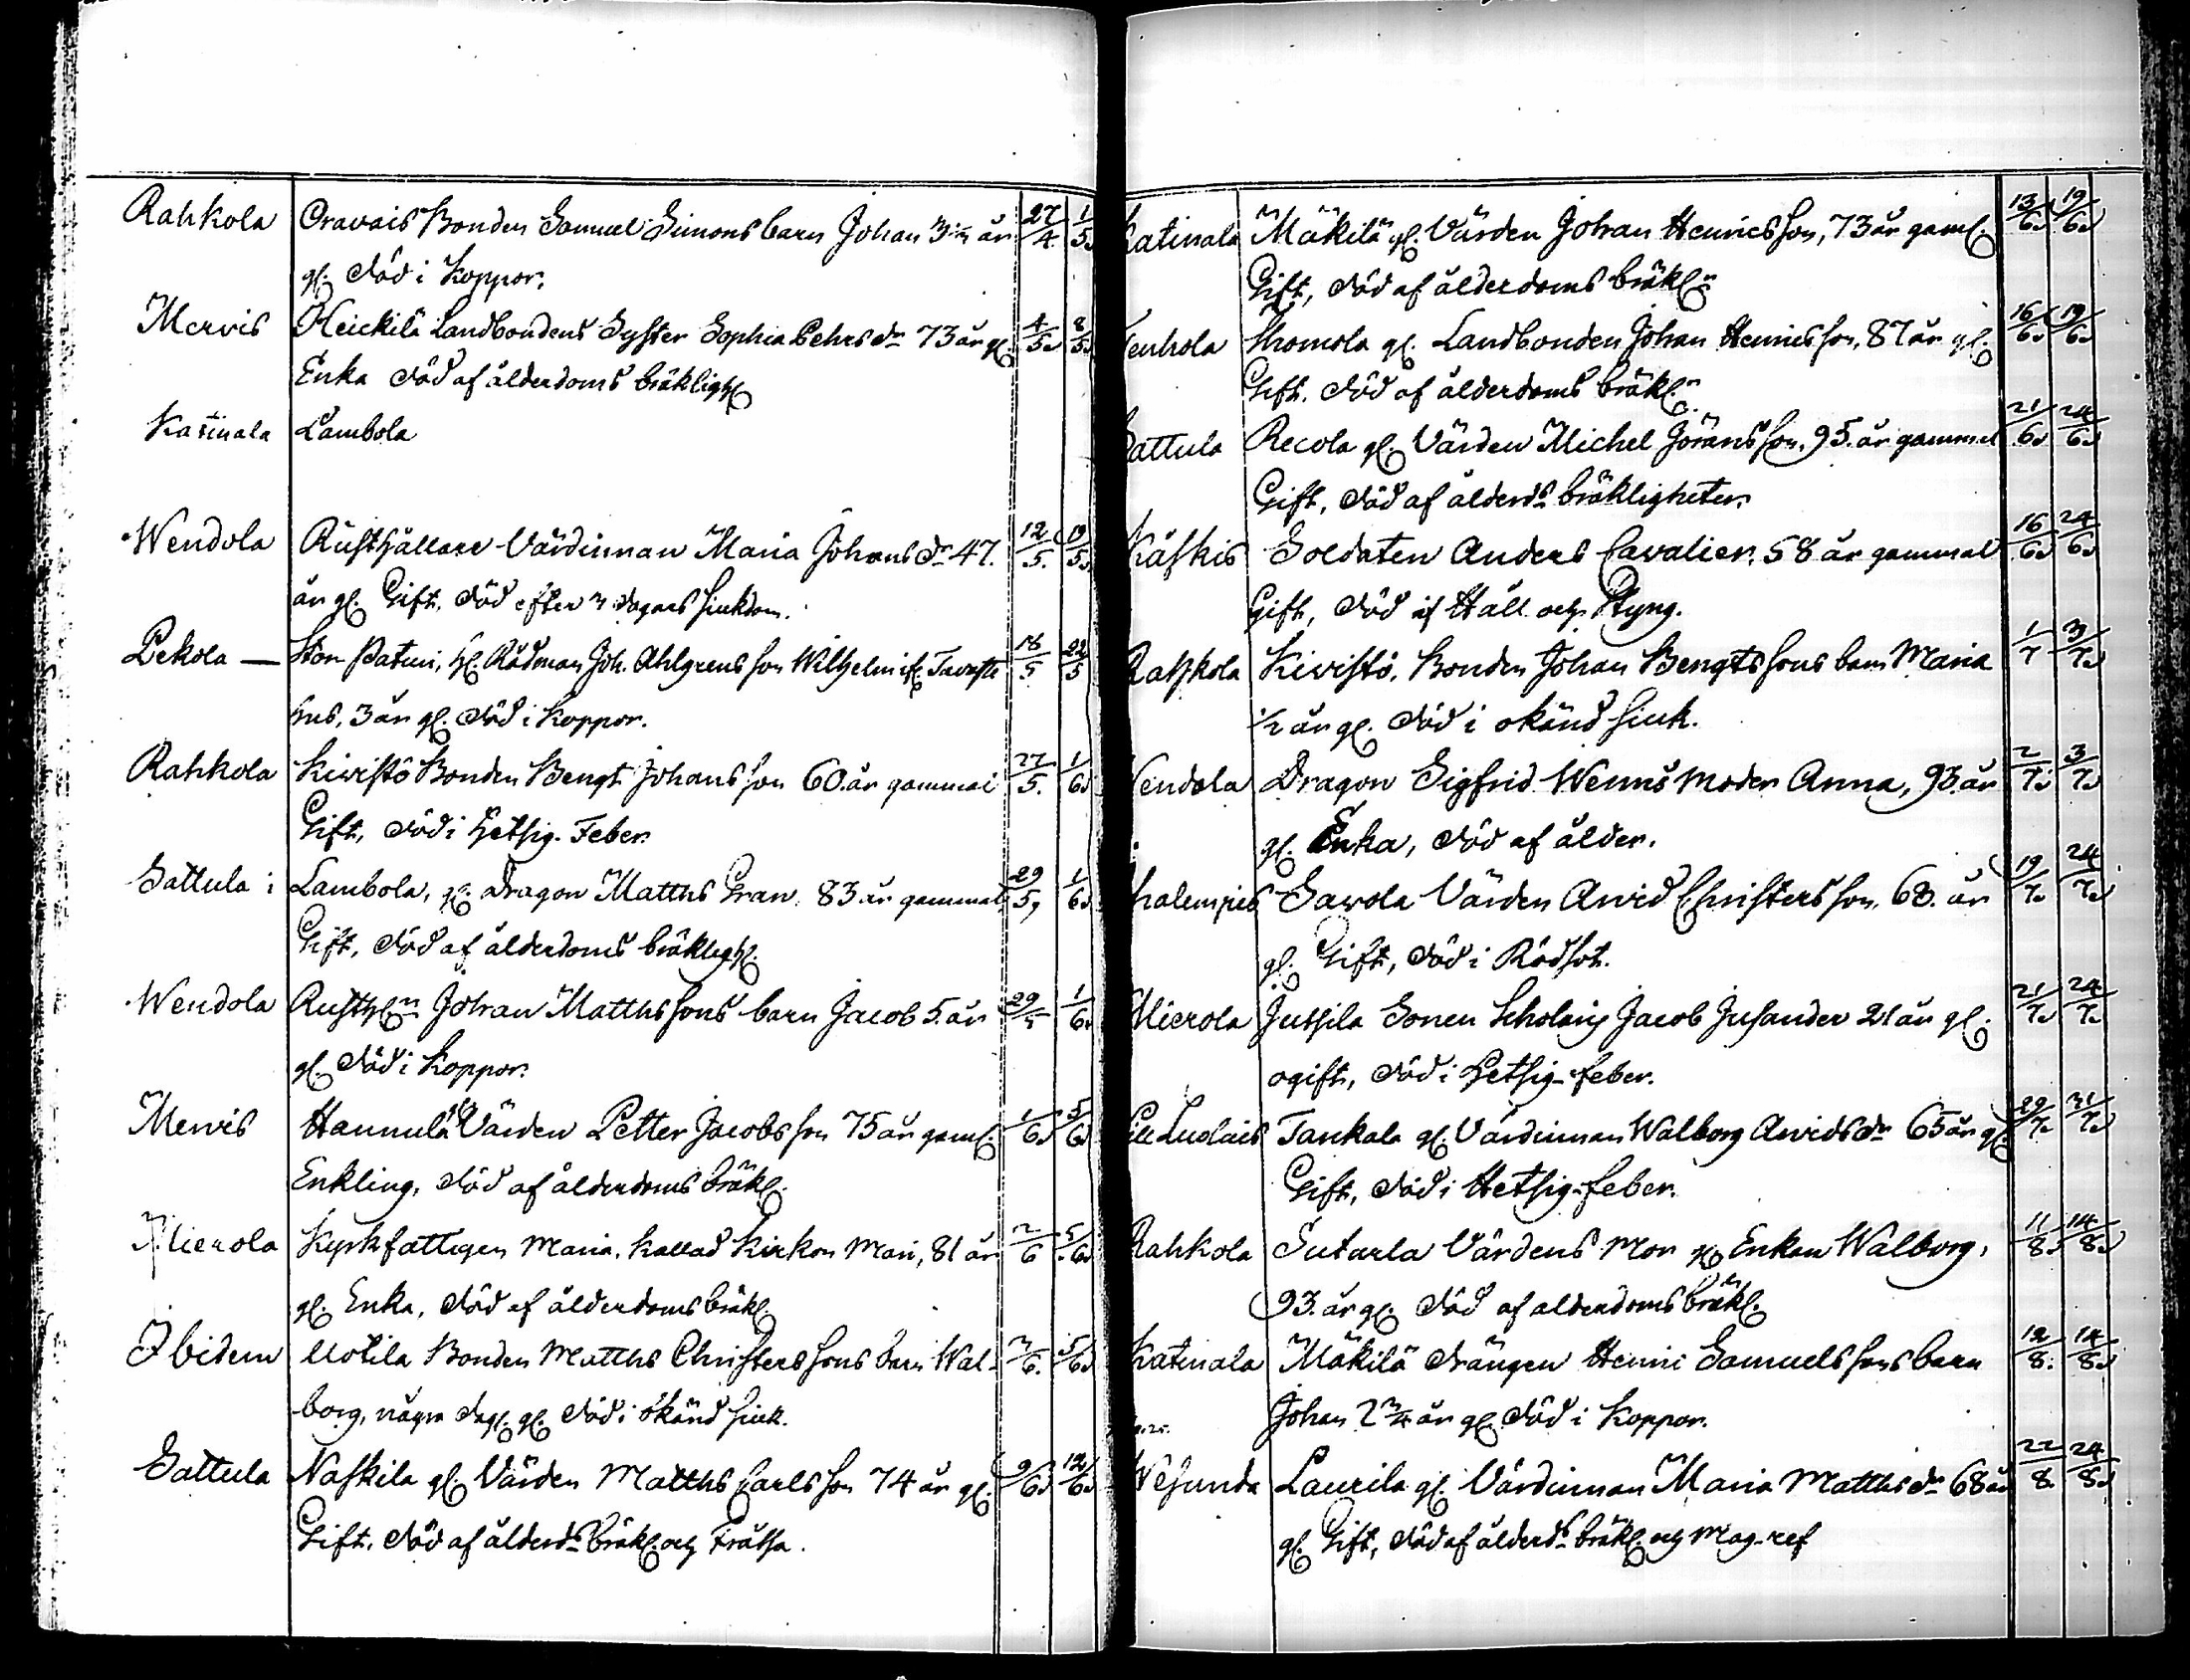 Rahkola Oravais Bonden Samuel Simons barn Johan 3 1/2 år 27/4 1/5
gl. död i Koppor.
Mervis Heickilä Landbondens Syster Sophia Pehrs dr 73 år gl. 4/5 8/5
Enka död af ålderdoms bräkligh.
Katinala Lambola
Wendola Rusthållare Värdinnan Maria Johans dr 47. 12/5 19/5
år gl. Gift. död efter 3 dagars siukdom.
Pekola — Stor Paturi, H. Rådman Joh. Ahlgrens son Wilhelm if. Tavaste 18/5 22/5
hus, 3 år gl. död i Koppor.
Rahkola Kivistö Bonden Bengt Johans son 60. år gammal 27/5. 1/6
Gift, död i hetsig Feber.
Sattula i Lambola, gl. Dragon Matths Gran. 83 år gammal, 29/5, 1/6
Gift, död af ålderdoms bräkligh.
Wendola Rusth. Johan Matthssons barn Jacob 5. år 29/5 1/6
gl. död i Koppor.
Mervis Hannula Värden Petter Jacobs son 75 år gaml. 1/6 5/6
Enkling, död af ålderdoms bräkl.
Mierola Kyrkfattigen Maria, kallad Kirkon Mari, 81 år 2/6 5/6
gl. Enka, död af ålderdoms bräkl.
Ibidem Uotila Bonden Matths Christers sons barn Wal- 3/6. 5/6
borg, några dag. gl. död i okänd siuk.
Sattula Naskila gl. Värden Matths Carls son 74 år gl. 9/6 12/6
Gift. död af ålderds bräkl. och Fråssa.
Katinala Mäkilä gl. Värden Johan Henrics son, 73 år gaml. 13/6 19/6
Gift, död af ålderdoms bräkl.
Tenhola Thomola gl. Landbonden Johan Henrics son, 87 år gl. 16/6 19/6
Gift. död af ålderdoms bräkl.
Sattula Recola gl. Värden Michel Jörans son, 95. år gammal 21/6 24/6
Gift, död af ålderds bräkligheter.
Käskis Soldaten Anders Cavalier, 58 år gammal 16/6 24/6
Gift, död af Håll och Styng.
Rahkola Kivistö, Bonden Johan Bengts sons barn Maria 1/7 3/7
1/2 år gl. död i okänd siuk.
Wendola Dragon Sigfrid Wenns moder Anna, 93. år 2/7 3/7
gl. Enka, död af ålder.
Ihalempis Sawola Värden Arvid Christers son, 68. år 19/7 24/7
gl. Gift, död i Rödsot.
Mierola Jussila Sonen Scholaris Jacob Jusander 21 år gl. 21/7 24/7
ogift, död i Hetsig-feber.
Luolais Tankala gl. Värdinnan Walborg Arvids dr 65 år gl. 29/7 31/7
Gift, död i Hetsig-feber.
Rahkola Sutarla Värdens Mor gl. Enkan Walborg, 11/8 14/8
93. år gl. död af alderdoms bräkl.
Katinala Mäkilä drängen Henric Samuels sons barn 12/8. 14/8
Johan 2 3/4 år gl. död i Koppor.
Wesunda Laurila gl. Värdinnan Maria Matths dr 68 år 22/8 24/8
gl. Gift, död af ålderds bräkl. och Mag-ref